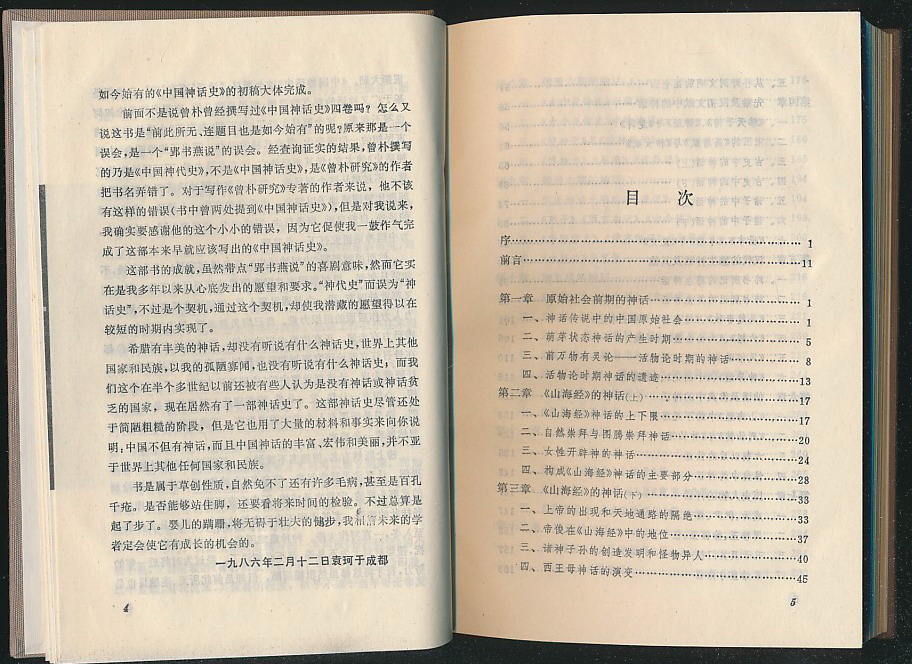 如今始有的《中国神话史》的初稿大体完成。
前面不是说曾朴曾经撰写过《中国神话史》四卷吗？怎么又
说这书是“前此所无、连题目也是如今始有”的呢？原来那是一个
误会，是一个“郢书燕说”的误会。经查询证实的结果，曾朴撰写
的乃是《中国神代史》，不是《中国神话史》，是《曾朴研究》的作者
把书名弄错了。对于写作《曾朴研究》专著的作者来说，他不该
有这样的错误（书中曾两处提到《中国神话史》），但是对我说来，
我确实要感谢他的这个小小的错误，因为它促使我一鼓作气完
成了这部本来早就应该写出的《中国神话史》。
这部书的成就，虽然带点“郢书燕说”的喜剧意味，然而它实
在是我多年以来从心底发出的愿望和要求。“神代史”而误为“神
话史”，不过是个契机，通过这个契机，却使我潜藏的愿望得以在
较短的时期内实现了。
希腊有丰美的神话，却没有听说有什么神话史，世界上其他
国家和民族，以我的孤陋寡闻，也没有听说有什么神话史；而我
们这个在半个多世纪以前还被有些人认为是没有神话或神话贫
乏的国家，现在居然有了一部神话史了。这部神话史尽管还处
于简陋粗糙的阶段，但是它也用了大量的材料和事实来向你说
明：中国不但有神话，而且中国神话的丰富、宏伟和美丽，并不亚
于世界上其他任何国家和民族。
书是属于草创性质，自然免不了还有许多毛病，甚至是百孔
千疮。是否能够站住脚，还要看将来时间的检验。不过总算是
起了步了。婴儿的蹒跚，将无碍于壮大的健步，我相信未来的学
者定会使它有成长的机会的。
一九八六年二月十二日袁珂于成都
4
目 次
序……1
前言……11
第一章 原始社会前期的神话……1
一、神话传说中的中国原始社会……1
二、萌芽状态神话的产生时期……5
三、前万物有灵论——活物论时期的神话……8
四、活物论时期神话的遗迹……13
第二章 《山海经》的神话（上）……17
一、《山海经》神话的上下限……17
二、自然崇拜与图腾崇拜神话……20
三、女性开辟神的神话……24
四、构成《山海经》神话的主要部分……28
第三章 《山海经》的神话（下）……33
一、上帝的出现和天地通路的隔绝……33
二、帝俊在《山海经》中的地位……37
三、诸神子孙的创造发明和怪物异人……40
四、西王母神话的演变……45
5